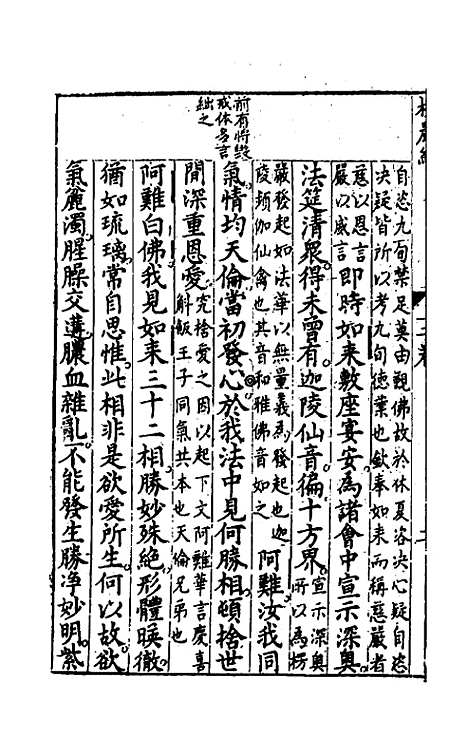 自恣九旬禁足莫由觀佛故於休夏咨決心疑自恣
決疑皆所以考九旬德業也欽奉如來而稱慈嚴者
慈以恩言
嚴以威言即時如來敷座宴安爲諸會中宣示深奥
法筵清衆得未曾有迦陵仙音徧十方界宣示深奥
所以爲楞
嚴發起如法華以無量義爲發起也迦
陵頻伽仙禽也其音和雅佛音如之阿難汝我同
氣情均天倫當初發心於我法中見何勝相頓捨世
間深重恩愛究捨愛之因以起下文阿難華言慶喜
斛飯王子同氣共本也天倫兄弟也
阿難白佛我見如來三十二相勝妙殊絶形體暎徹
猶如琉璃常自思惟此相非是欲愛所生何以故欲
氣麤濁腥臊交遘膿血雜亂不能發生勝淨妙明紫
前有將毀
戒体各言
絀之